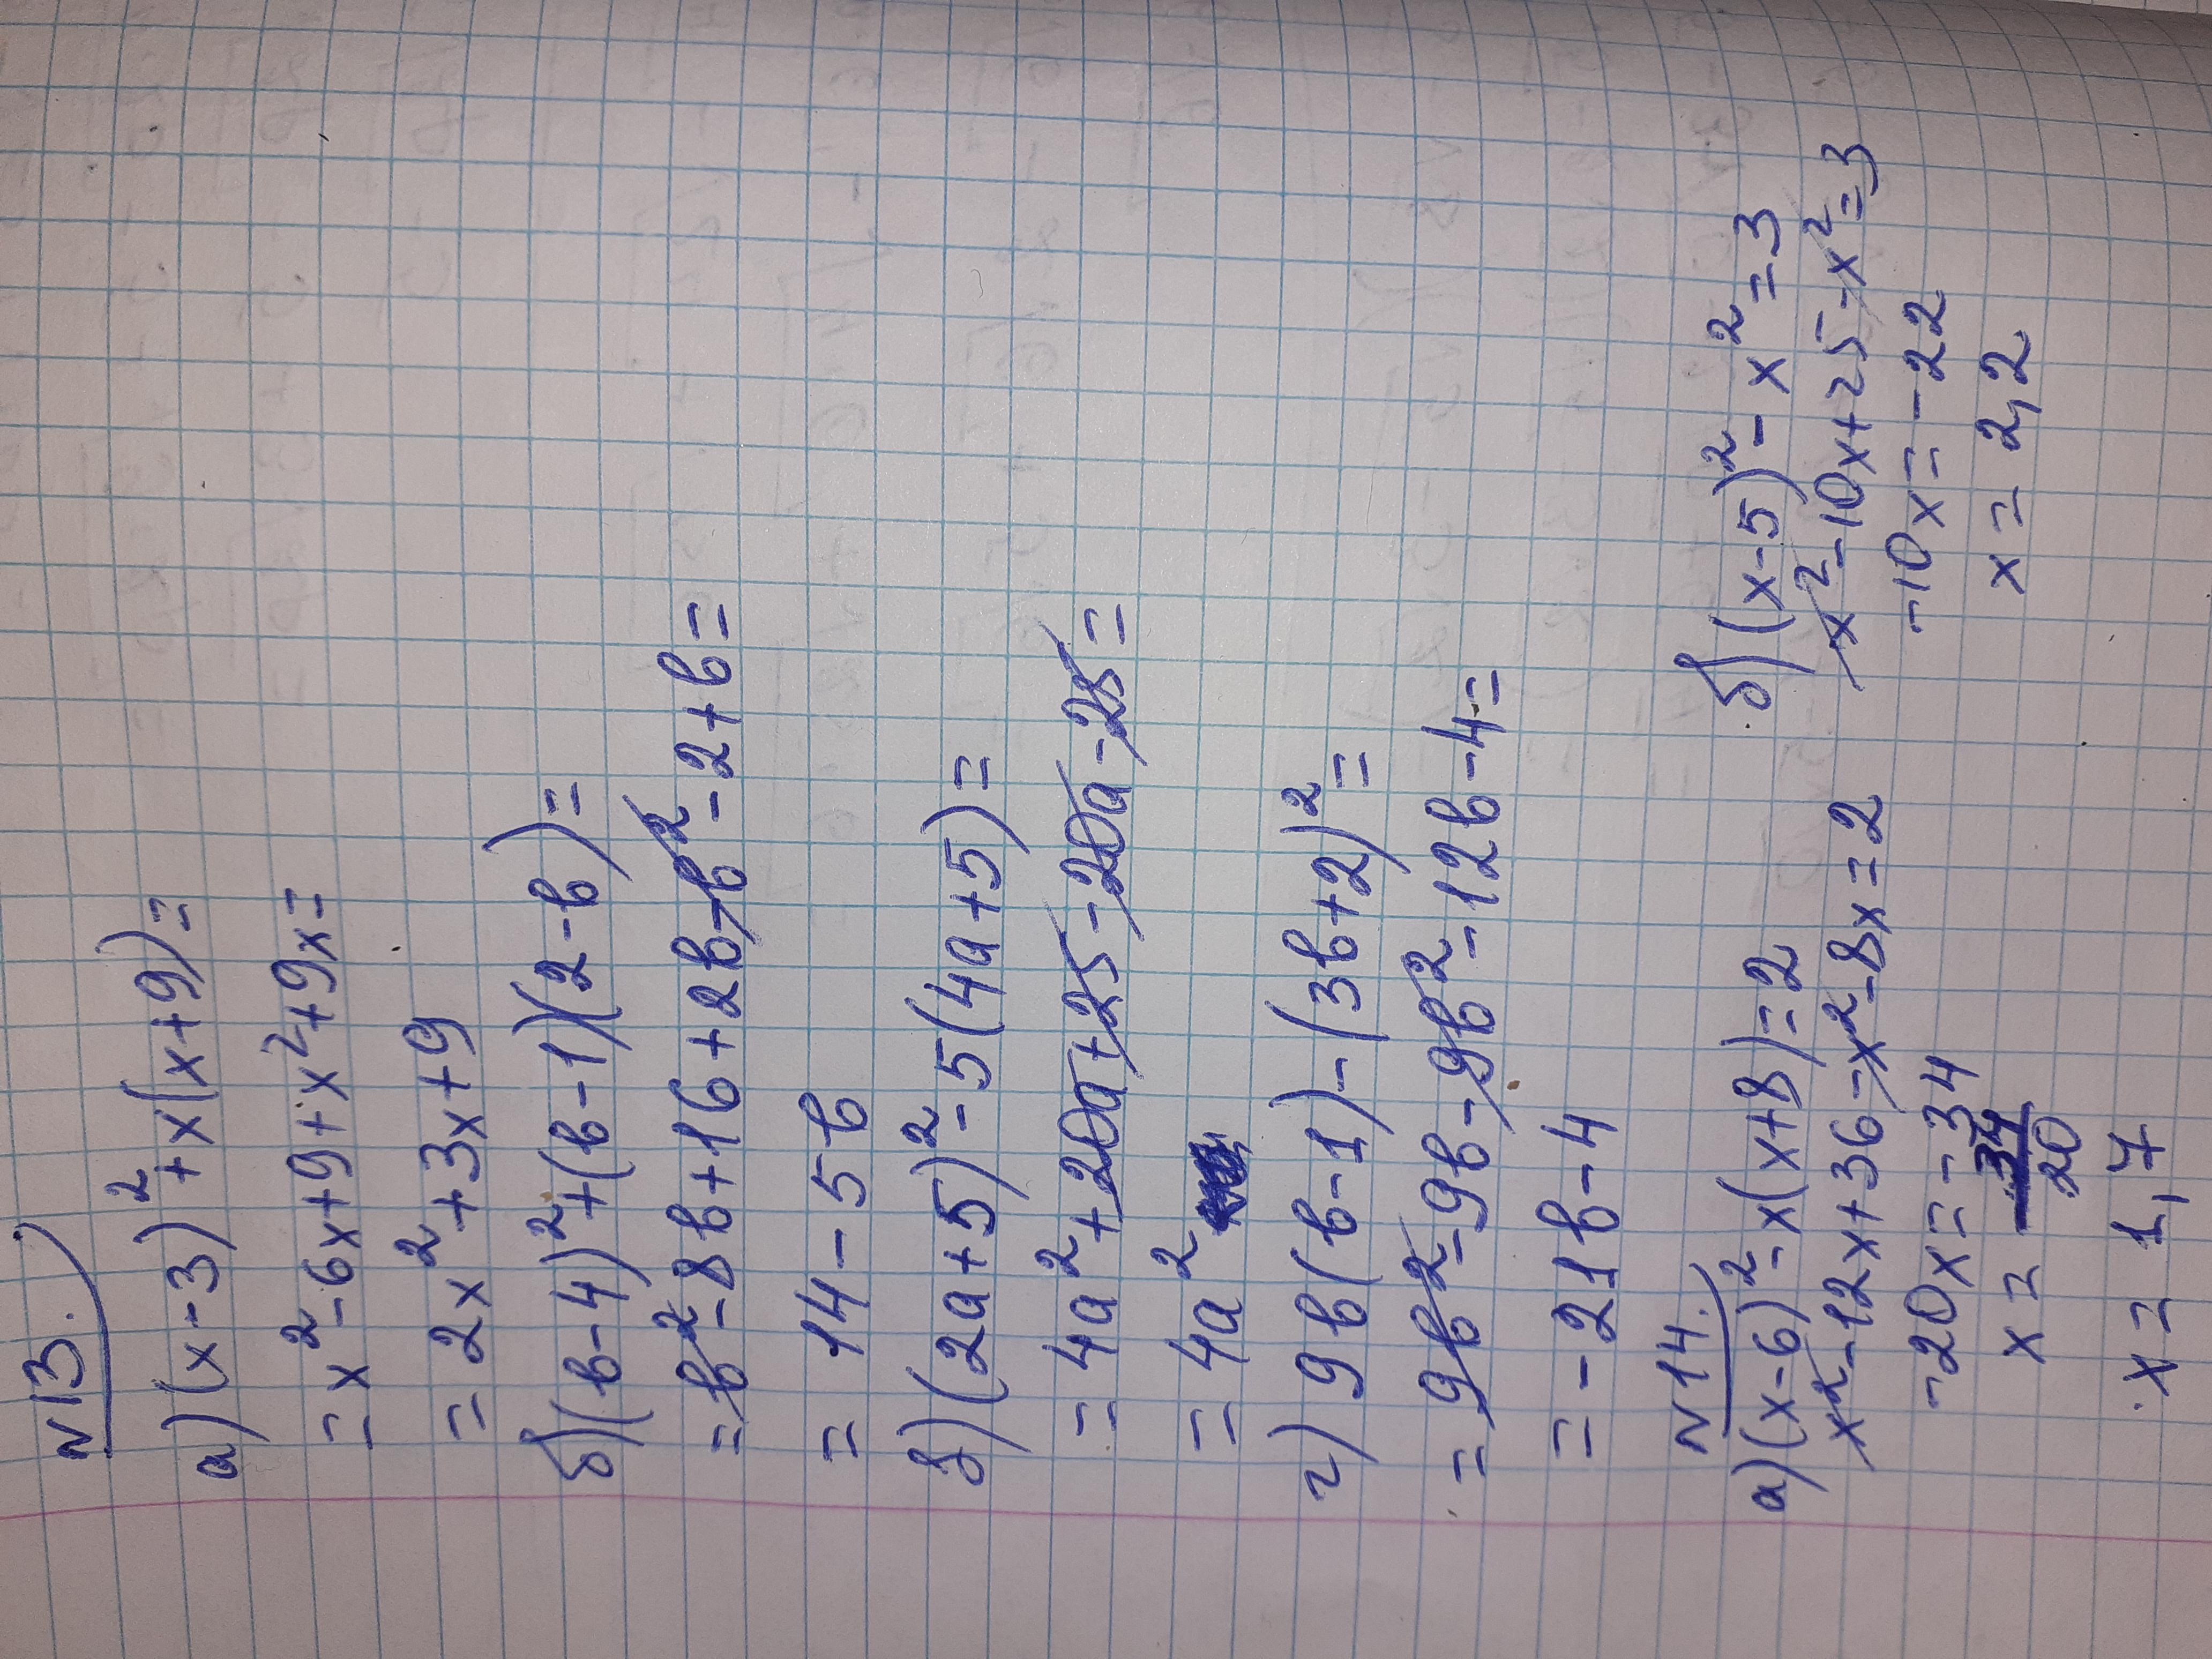 N13.
а) (x-3)²+x(x+9)=
=x²-6x+9+x²+9x=
=2x²+3x+9
б) (в-4)²+(в-1)(2-в)=
=в²-8в+16+2в-в²-2+в=
=14-5в
в) (2a+5)²-5(4a+5)=
=4a²+20a+25-20a-25=
=4a²
г) 9в(в-1)-(3в+2)²=
=9в²-9в-9в²-12в-4=
=-21в-4
N14.
а) (x-6)²-x(x+8)=2
x²-12x+36-x²-8x=2
-20x=-34
x=34/20
x=1,7
б) (x-5)²-x²=3
x²-10x+25-x²=3
-10x=-22
x=2,2